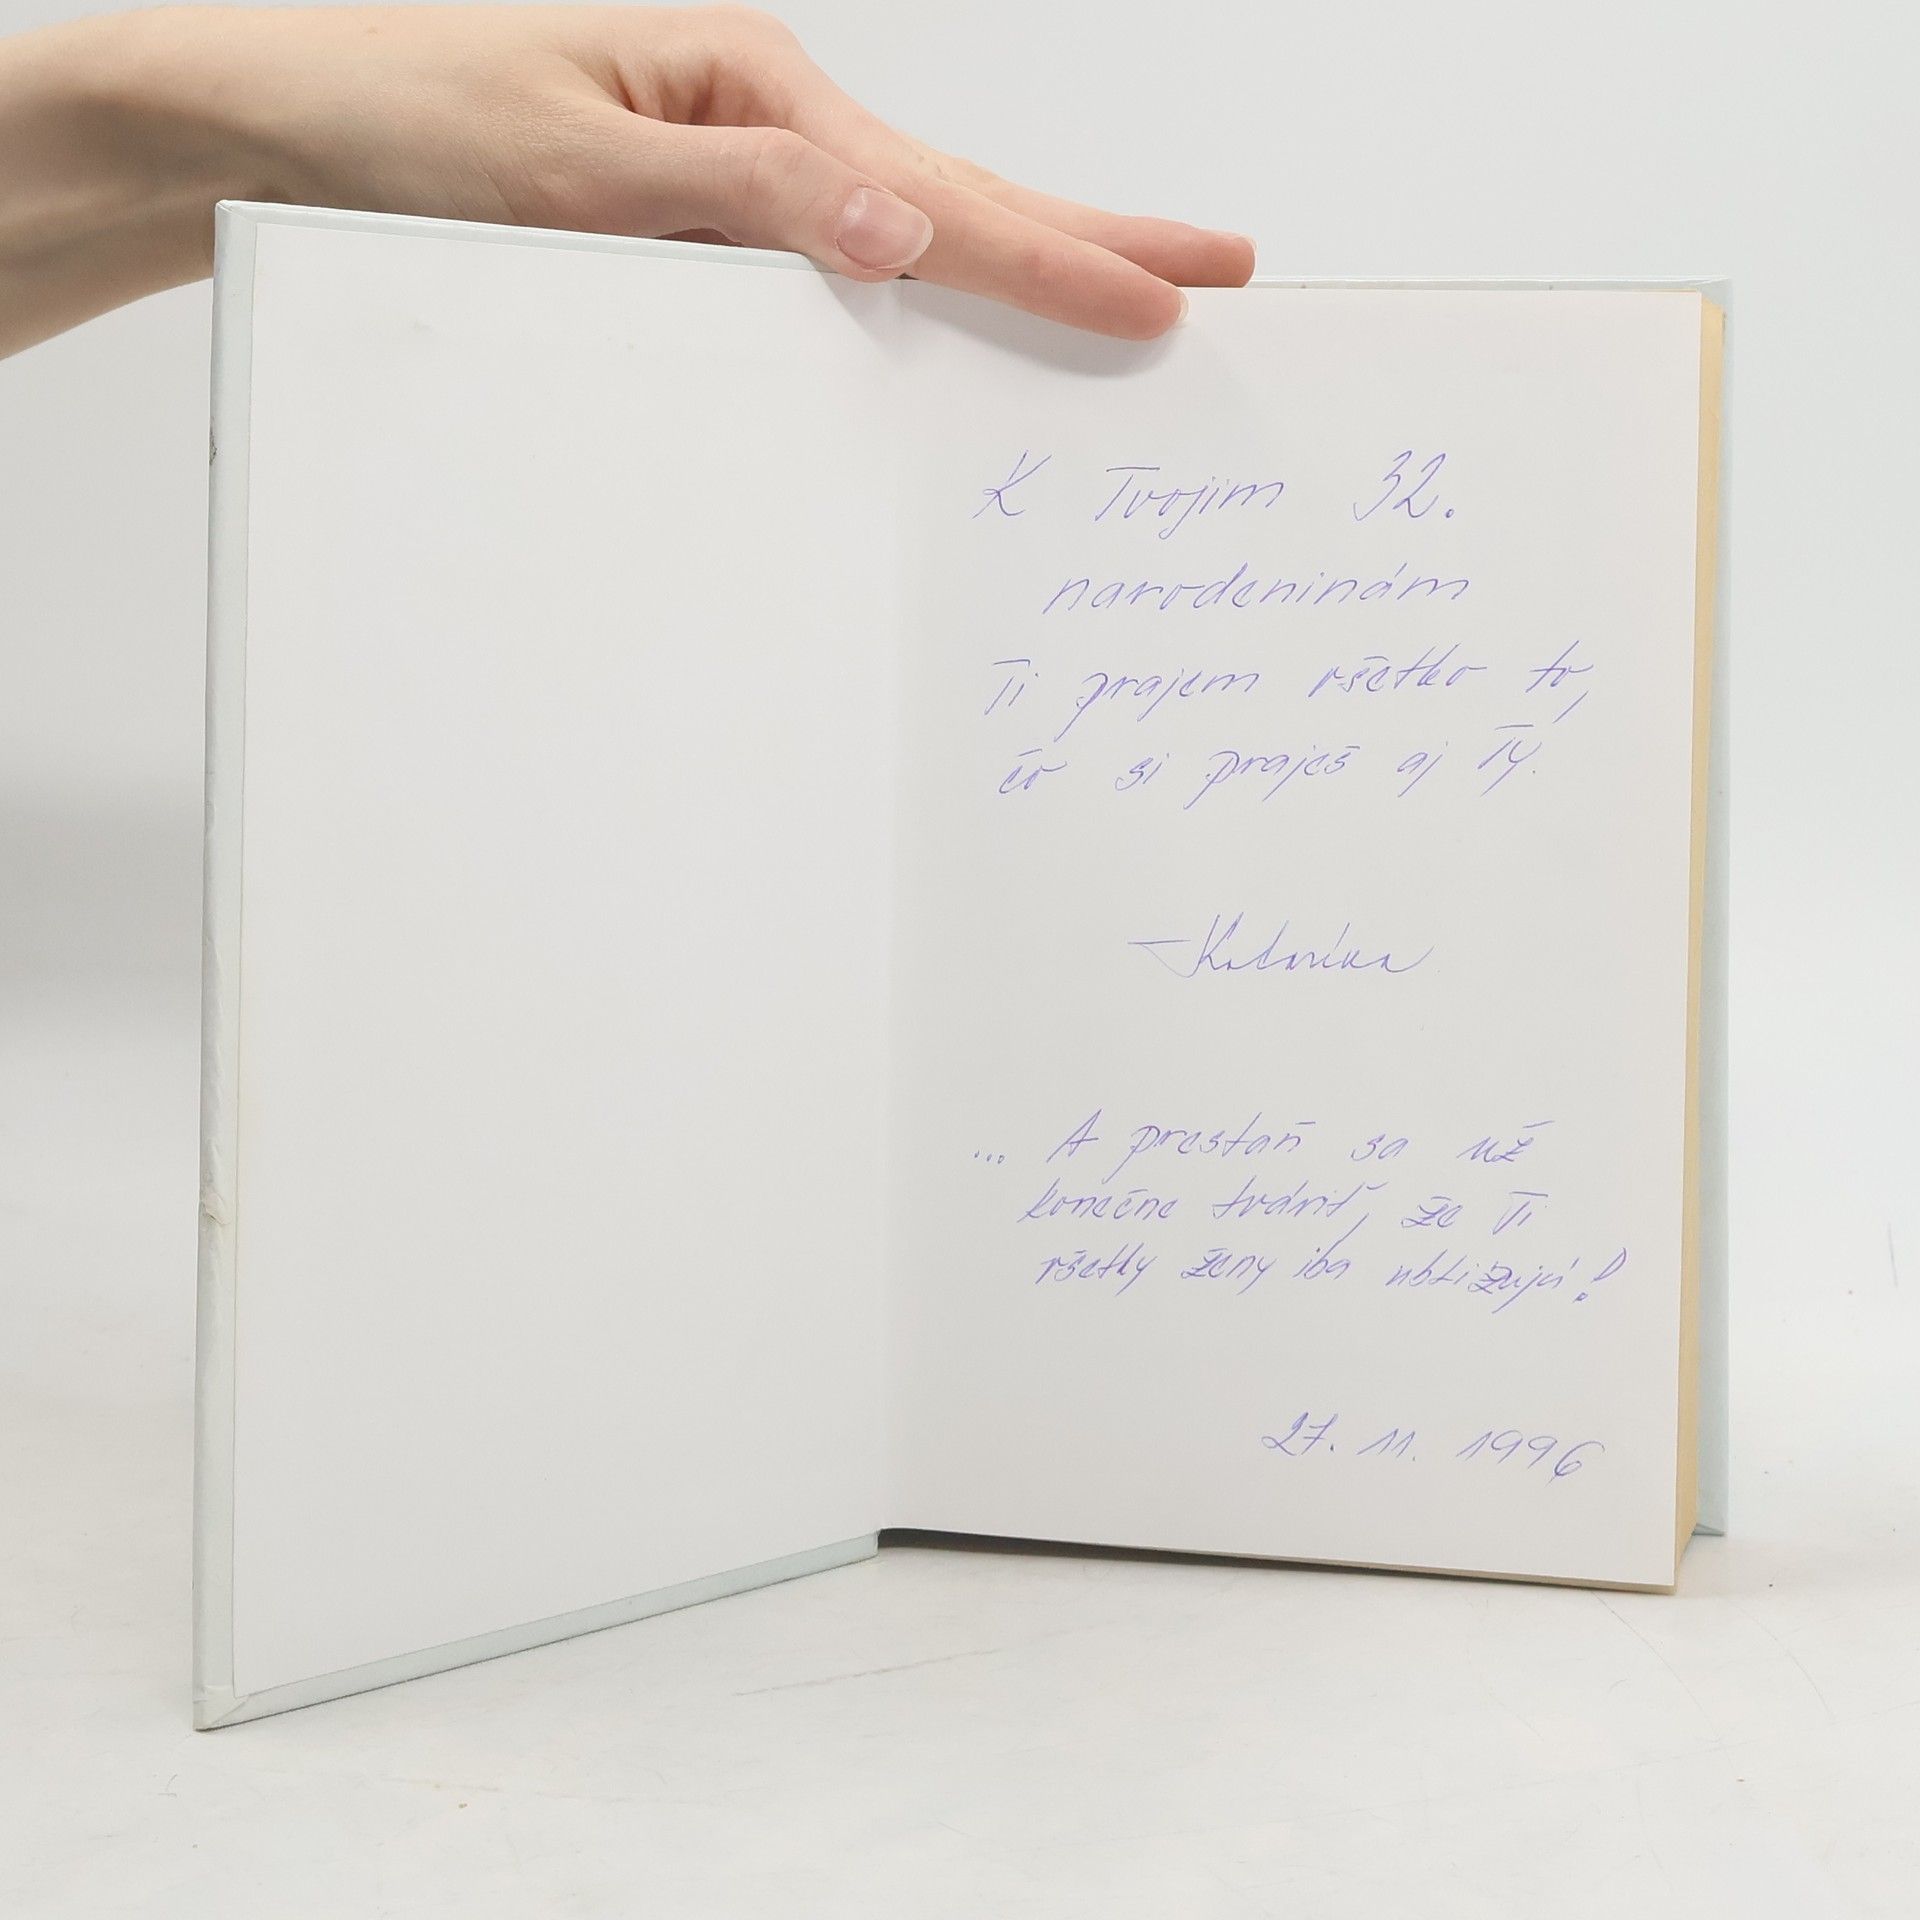 K Tvojim 32.
narodeninám
Ti prajem všetko to,
čo si praješ aj Ty.
Katarína
... A prestaň sa už
konečne tváriť, že Ti
všetky ženy iba ubližujú!
27. 11. 1996